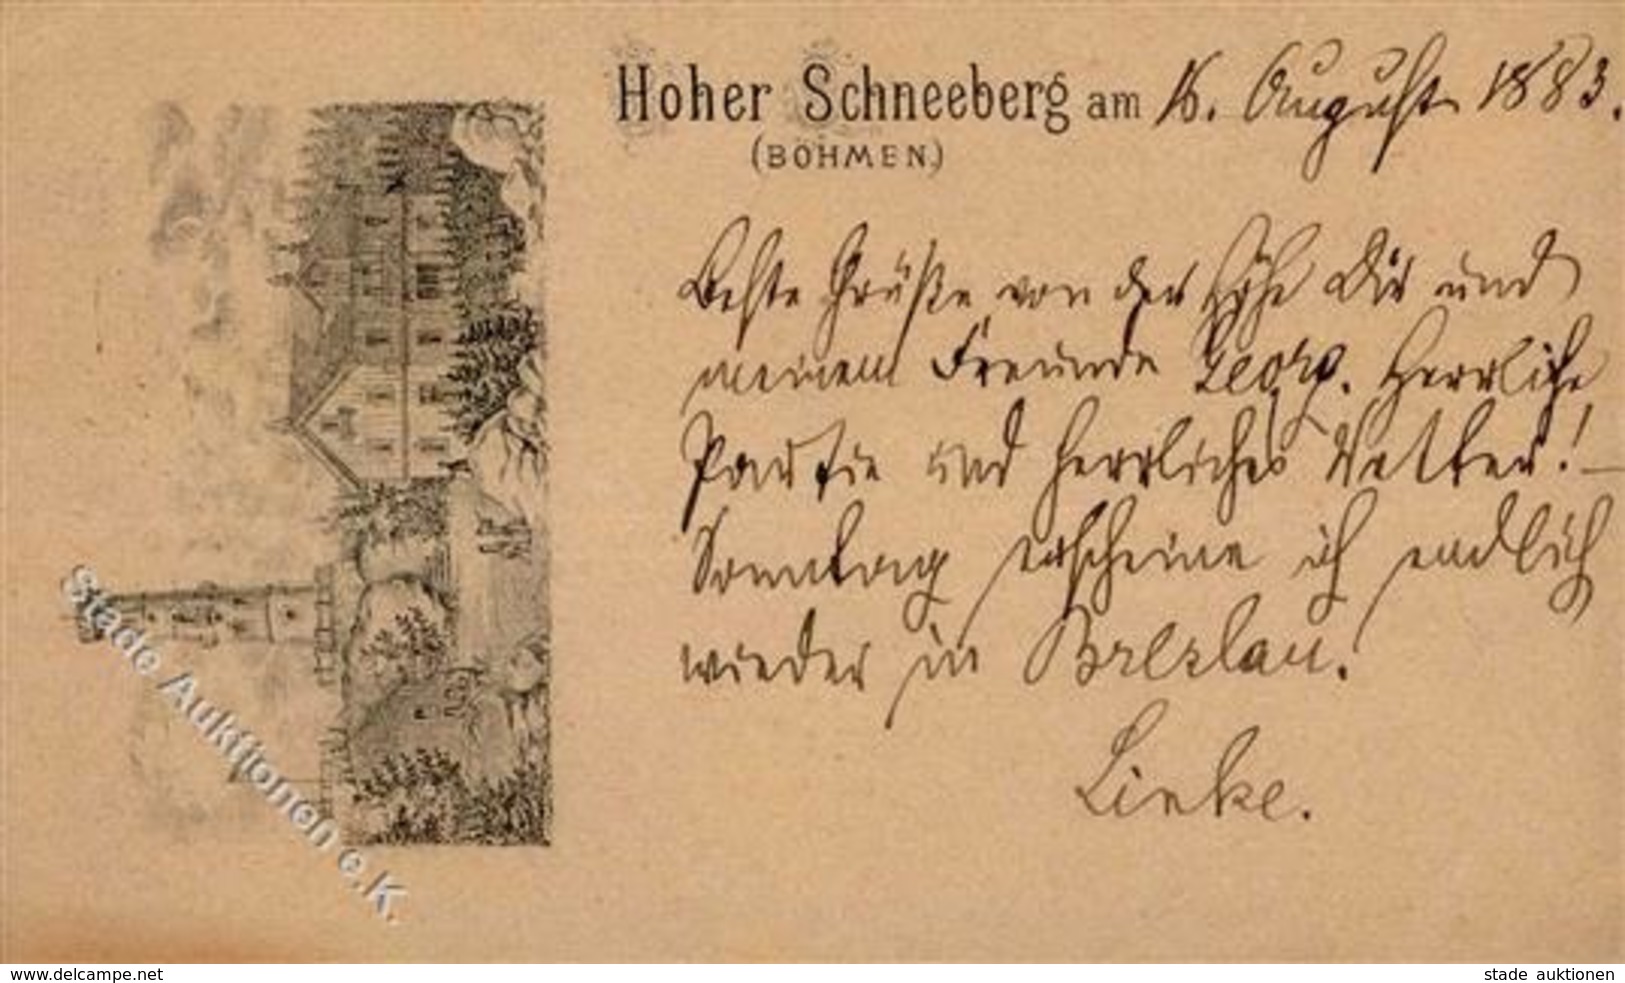 Hoher Schneeberg am 16. August 1883.
(BÖHMEN.)
Beste Grüße von der Höhe Dir und
meinem Freunde Georg. Herrliche
Partie und herrliches Wetter! –
Sonntag erscheine ich endlich
wieder in Breslau.
Linke.
Stade Auktionen e.K.
www.delcampe.net
stade auktionen